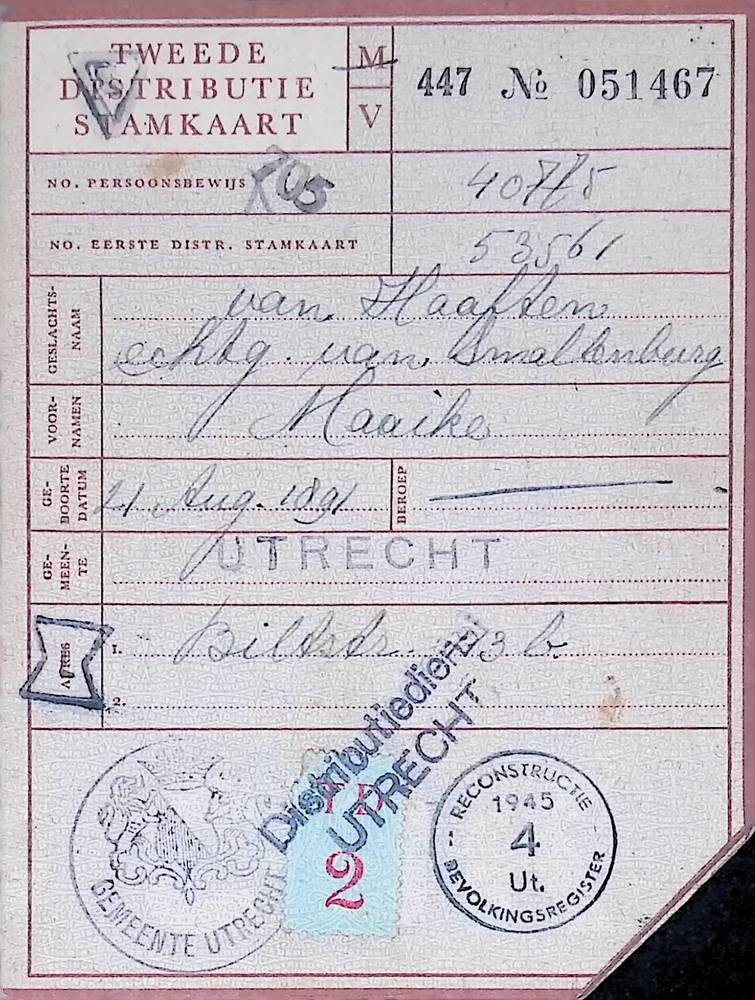 TWEEDE
DISTRIBUTIE
STAMKAART
M
V
447 № 051467
NO. PERSOONSBEWIJS
705
NO. EERSTE DISTR. STAMKAART
53561
GESLACHTS-
NAAM
van Haaften
echtg. van Smaltenburg
VOOR-
NAMEN
Maaike
GE-
BOORTE
DATUM
21 Aug. 1891
BEROEP
GE-
MEEN-
TE
UTRECHT
1.
Biltstr.
b
2.
Distributiedienst
UTRECHT
GEMEENTE UTRECHT
TD
2
RECONSTRUCTIE
1945
4
Ut.
BEVOLKINGSREGISTER